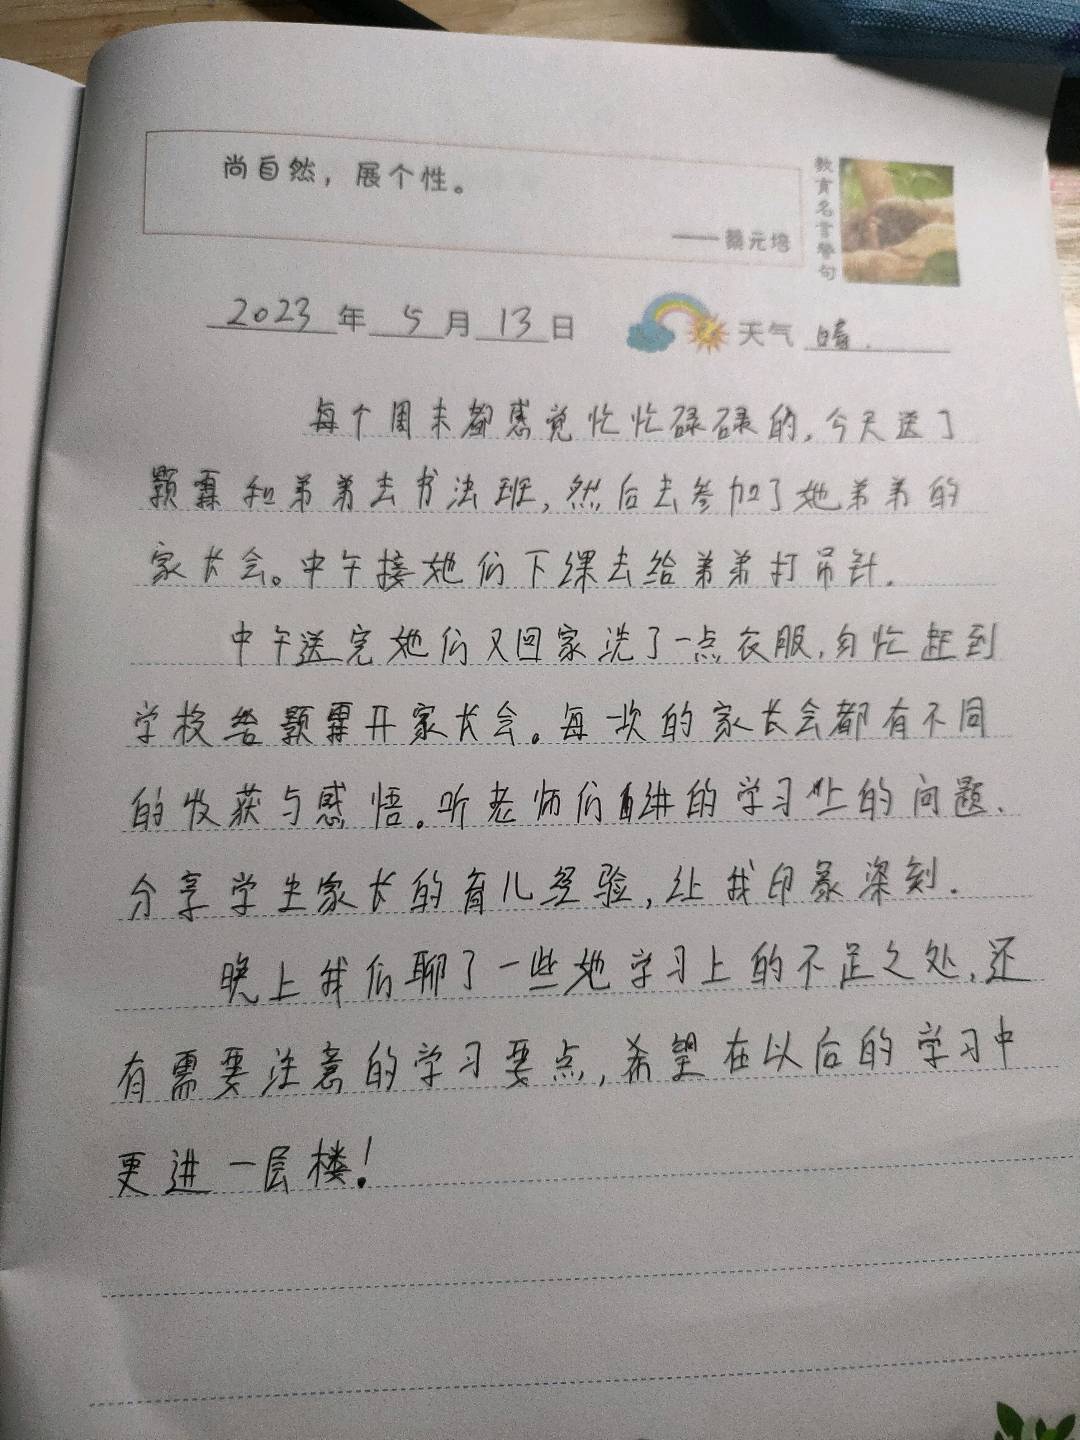 尚自然，展个性。
——蔡元培
教育名言警句
2023年5月13日 天气 晴.
每个周末都感觉忙忙碌碌的,今天送了
颢霖和弟弟去书法班,然后去参加了她弟弟的
家长会。中午接她们下课去给弟弟打吊针.
中午送完她们又回家洗了一点衣服,匆忙赶到
学校给颢霖开家长会。每一次的家长会都有不同
的收获与感悟。听老师们讲的学习上的问题.
分享学生家长的育儿经验,让我印象深刻.
晚上我们聊了一些她学习上的不足之处,还
有需要注意的学习要点,希望在以后的学习中
更进一层楼!